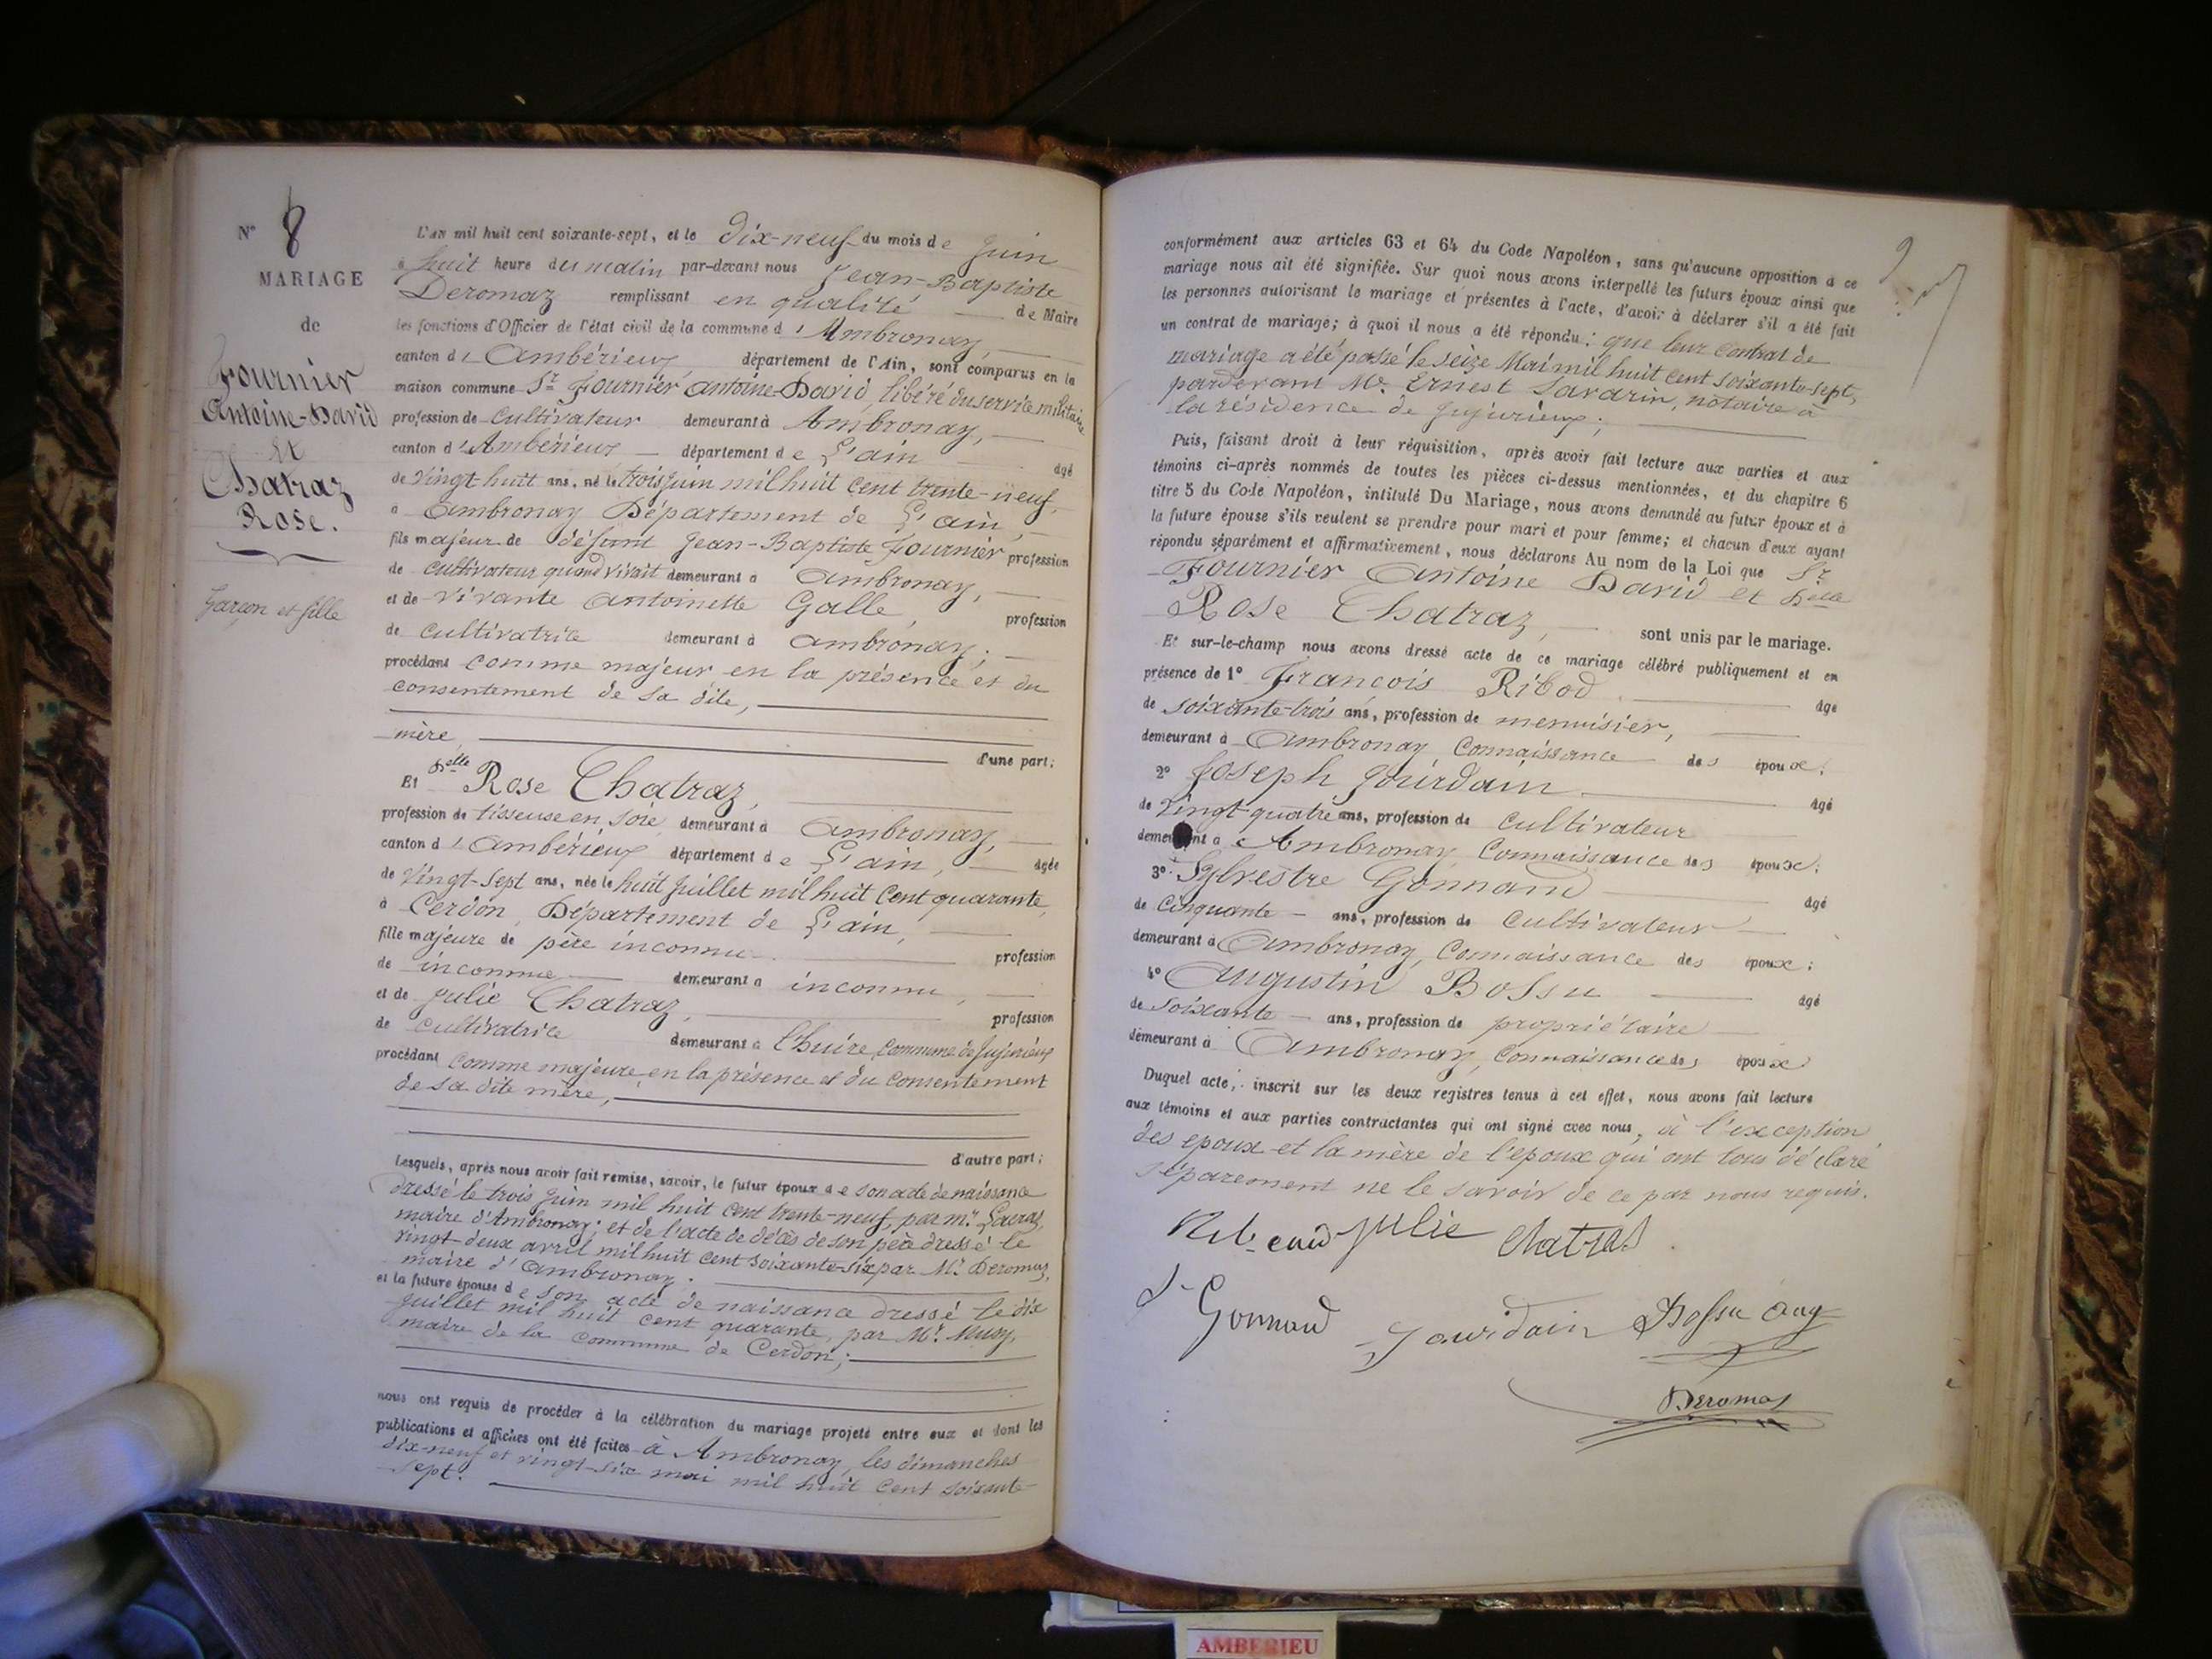 N° 8
MARIAGE
de
Fournier
Antoine-David
Et
Chatraz
Rose.
Garçon et fille
L'an mil huit cent soixante-sept, et le dix-neuf du mois de Juin
à huit heure du matin par-devant nous Jean-Baptiste
Deromaz remplissant en qualité de Maire
les fonctions d'Officier de l'état civil de la commune d'Ambronay,
canton d'Ambérieux, département de l'Ain, sont comparus en la
maison commune Sr Fournier Antoine-David, libéré du service militaire
profession de Cultivateur demeurant à Ambronay,
canton d'Ambérieux département de L'ain âgé
de Vingt-huit ans, né le trois juin mil huit cent trente-neuf,
à Ambronay Département de L'ain,
fils majeur de défunt Jean-Baptiste Fournier profession
de Cultivateur quand vivait demeurant à Ambronay,
et de vivante Antoinette Galle, profession
de cultivatrice demeurant à Ambronay;
procédant comme majeur en la présence et du
consentement de sa dite,
mère d'une part;
Et Delle Rose Chatraz,
profession de tisseuse en soie demeurant à Ambronay,
canton d'Ambérieux département de L'ain, âgée
de Vingt-Sept ans, née le huit Juillet mil huit Cent quarante,
à Cerdon, Département de L'ain,
fille majeure de père inconnu profession
de inconnue demeurant à inconnu,
et de Julie Chatraz, profession
de cultivatrice demeurant à l'huire, Commune de Jujurieux
procédant comme majeure, en la présence et du Consentement
de sa dite mère,
d'autre part;
Lesquels, après nous avoir fait remise, savoir, le futur époux de son acte de naissance
dressé le trois Juin mil huit cent trente-neuf, par mr.
maire d'Ambronay; et de l'acte de décès de son père dressé le
vingt-deux avril mil huit cent soixante-six par Mr. Deromaz,
maire d'Ambronay.
et la future épouse de son acte de naissance dressé le dix
Juillet mil huit cent quarante, par Mr. Musy,
maire de la Commune de Cerdon;
nous ont requis de procéder à la célébration du mariage projeté entre eux et dont les
publications et affiches ont été faites à Ambronay, les dimanches
dix-neuf et vingt-six mai mil huit Cent soixante-
sept.
conformément aux articles 63 et 64 du Code Napoléon, sans qu'aucune opposition à ce
mariage nous ait été signifiée. Sur quoi nous avons interpellé les futurs époux ainsi que
les personnes autorisant le mariage et présentes à l'acte, d'avoir à déclarer s'il a été fait
un contrat de mariage; à quoi il nous a été répondu: que leur Contrat de
mariage a été passé le seize Mai mil huit cent soixante-sept,
pardevant Me. Ernest Savarin, notaire à
la résidence de Jujurieux;
Puis, faisant droit à leur réquisition, après avoir fait lecture aux parties et aux
témoins ci-après nommés de toutes les pièces ci-dessus mentionnées, et du chapitre 6
titre 5 du Code Napoléon, intitulé Du Mariage, nous avons demandé au futur époux et à
la future épouse s'ils veulent se prendre pour mari et pour femme; et chacun d'eux ayant
répondu séparément et affirmativement, nous déclarons Au nom de la Loi que Sr
Fournier Antoine David et Delle
Rose Chatraz, sont unis par le mariage.
Et sur-le-champ nous avons dressé acte de ce mariage célébré publiquement et en
présence de 1° François Ribod âgé
de soixante-trois ans, profession de menuisier,
demeurant à Ambronay Connaissance des époux;
2° Joseph Jourdain âgé
de Vingt-quatre ans, profession de Cultivateur
demeurant à Ambronay Connaissance des époux;
3° Sylvestre Gonnand âgé
de Cinquante ans, profession de cultivateur
demeurant à Ambronay, Connaissance des époux;
4° Augustin Bossu âgé
de Soixante ans, profession de propriétaire
demeurant à Ambronay, Connaissance des époux
Duquel acte, inscrit sur les deux registres tenus à cet effet, nous avons fait lecture
aux témoins et aux parties contractantes qui ont signé avec nous, à l'exception
des epoux et la mère de l'epoux qui ont tous déclaré
séparement ne le savoir de ce par nous requis.
Julie Chatras
S. Gonnand Jourdain Bossu Aug
Deromas
AMBERIEU